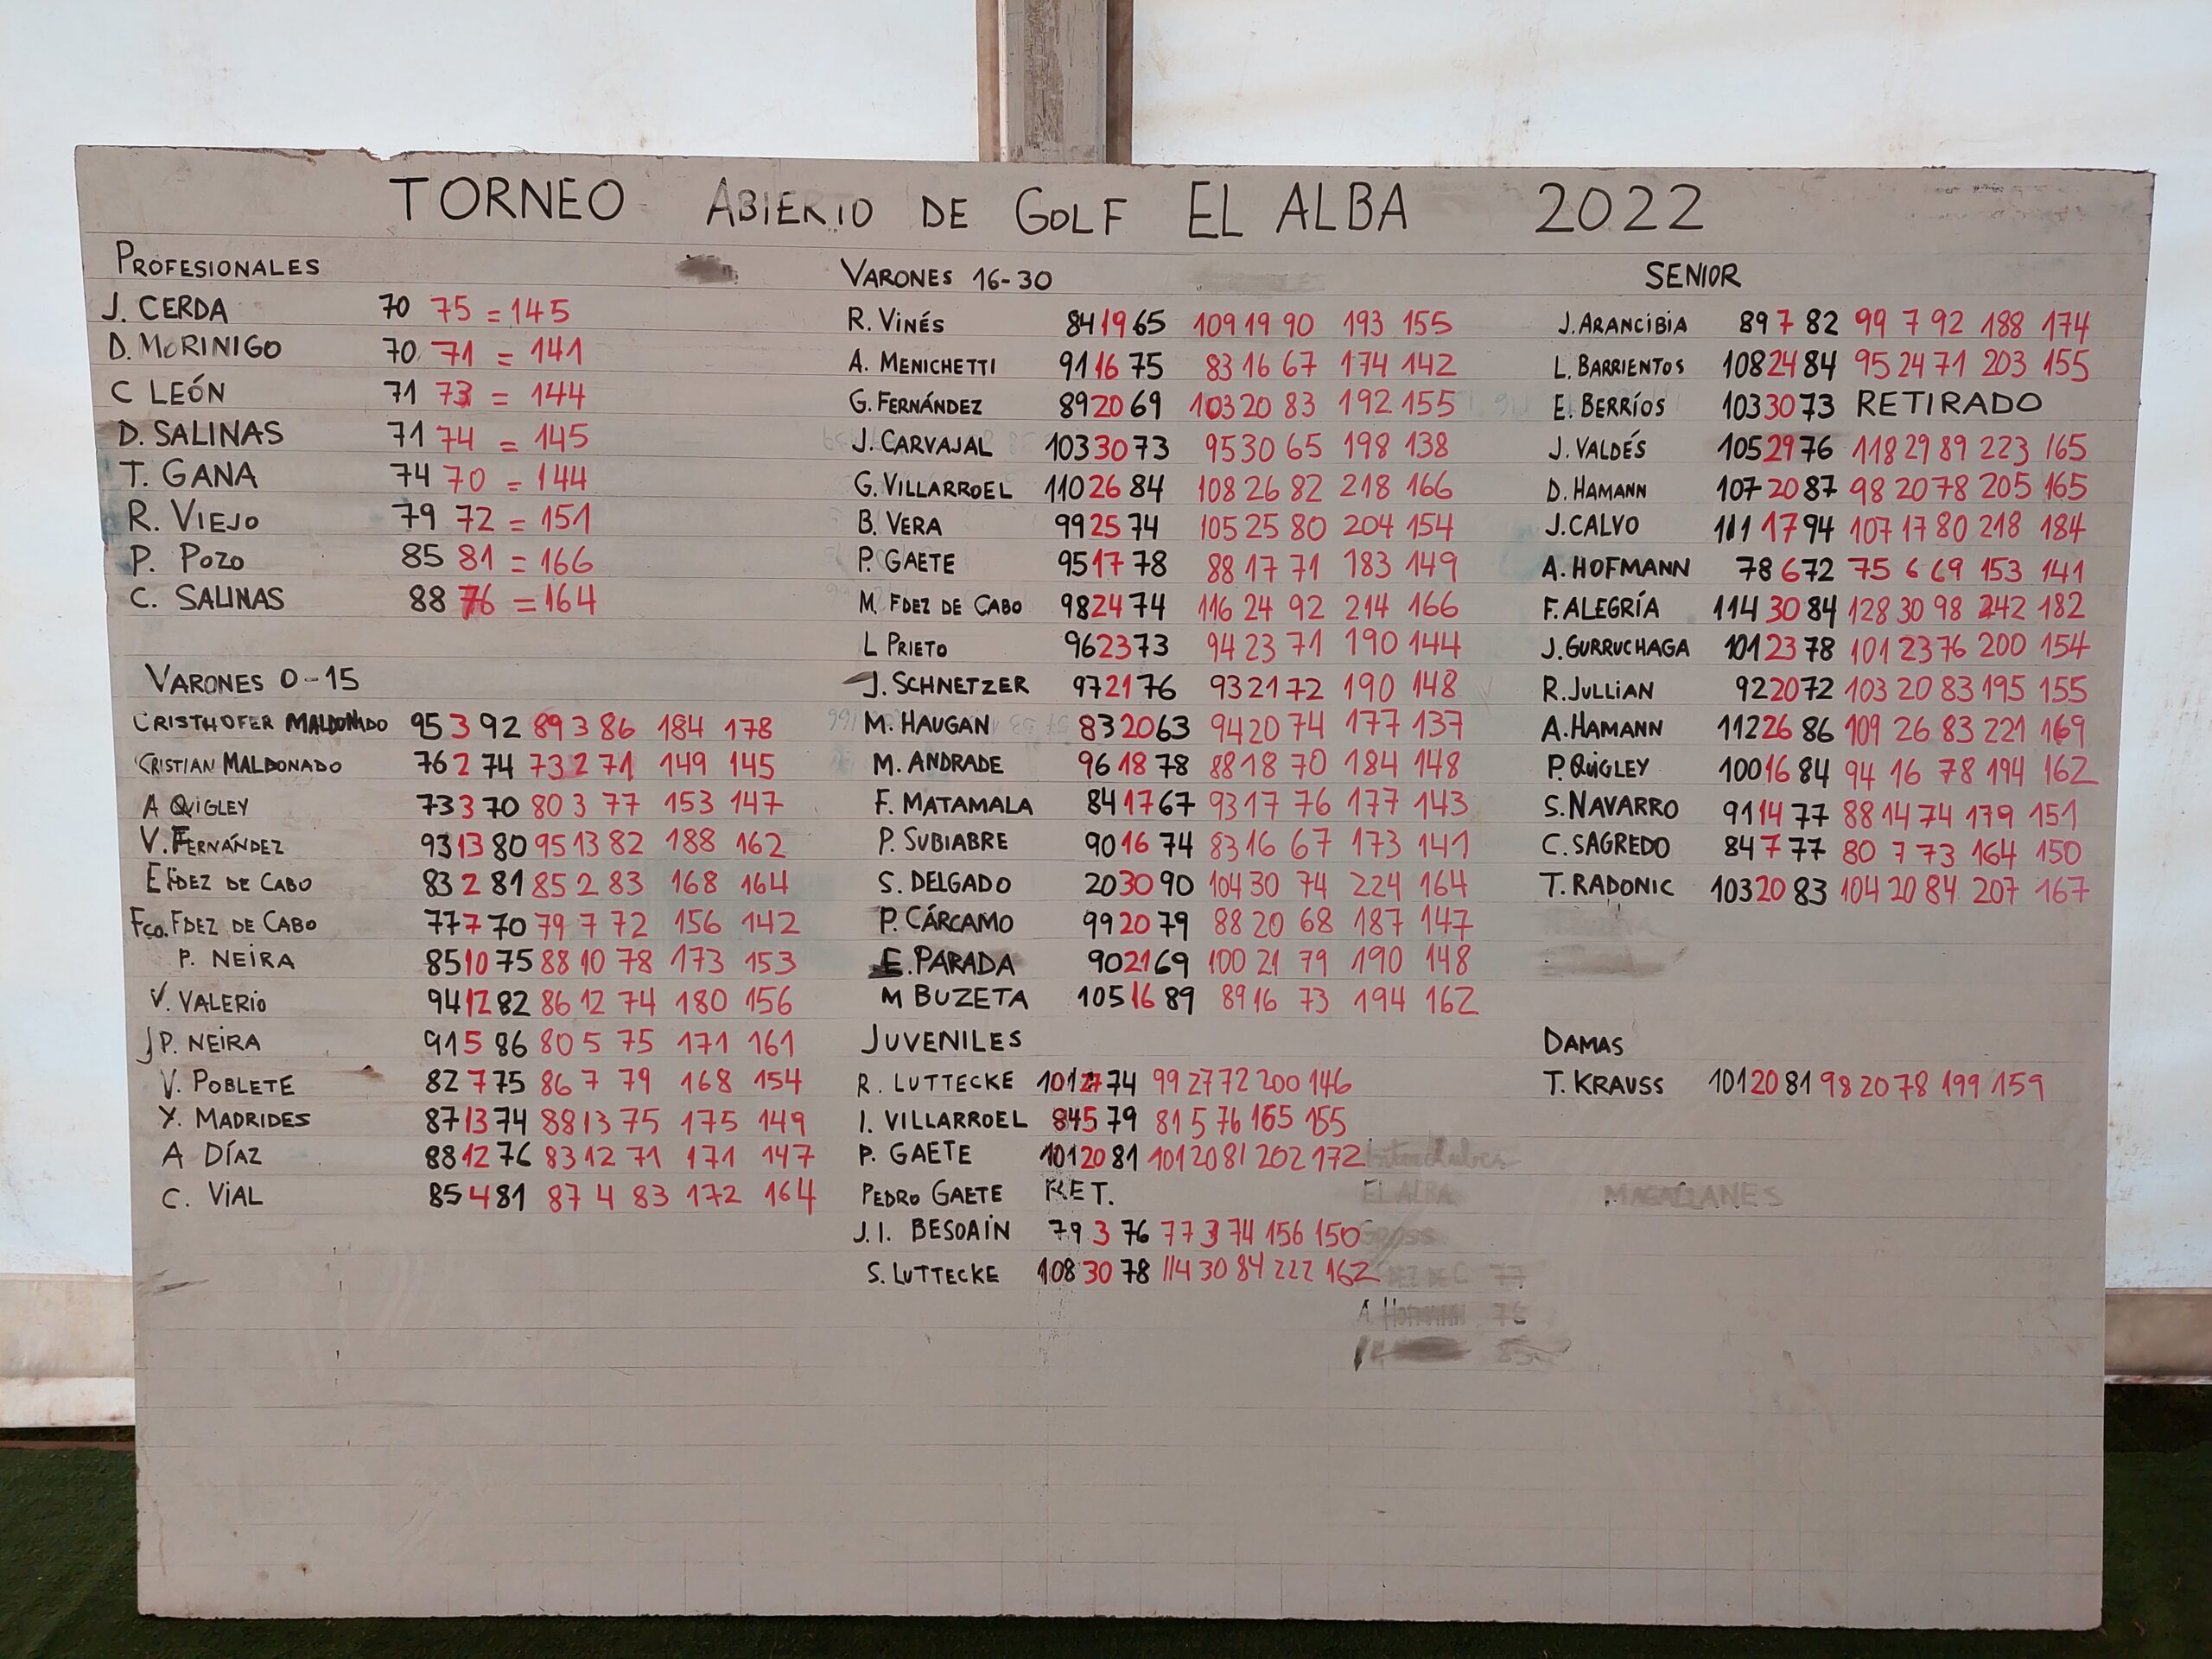 TORNEO ABIERTO DE GOLF EL ALBA 2022
PROFESIONALES
J. CERDA 70 75 = 145
D. MORINIGO 70 71 = 141
C LEÓN 71 73 = 144
D. SALINAS 71 74 = 145
T. GANA 74 70 = 144
R. VIEJO 79 72 = 151
P. POZO 85 81 = 166
C. SALINAS 88 76 = 164
VARONES 0-15
CRISTHOFER MALDONADO 95 3 92 89 3 86 184 178
CRISTIAN MALDONADO 76 2 74 73 2 71 149 145
A QUIGLEY 73 3 70 80 3 77 153 147
V. FERNÁNDEZ 93 13 80 95 13 82 188 162
E FDEZ DE CABO 83 2 81 85 2 83 168 164
FCO. FDEZ DE CABO 77 7 70 79 7 72 156 142
P. NEIRA 85 10 75 88 10 78 173 153
V. VALERIO 94 12 82 86 12 74 180 156
JP. NEIRA 91 5 86 80 5 75 171 161
V. POBLETE 82 7 75 86 7 79 168 154
Y. MADRIDES 87 13 74 88 13 75 175 149
A DÍAZ 88 12 76 83 12 71 171 147
C. VIAL 85 4 81 87 4 83 172 164
VARONES 16-30
R. VINÉS 84 19 65 109 19 90 193 155
A. MENICHETTI 91 16 75 83 16 67 174 142
G. FERNÁNDEZ 89 20 69 103 20 83 192 155
J. CARVAJAL 103 30 73 95 30 65 198 138
G. VILLARROEL 110 26 84 108 26 82 218 166
B. VERA 99 25 74 105 25 80 204 154
P. GAETE 95 17 78 88 17 71 183 149
M. FDEZ DE CABO 98 24 74 116 24 92 214 166
L PRIETO 96 23 73 94 23 71 190 144
J. SCHNETZER 97 21 76 93 21 72 190 148
M. HAUGAN 83 20 63 94 20 74 177 137
M. ANDRADE 96 18 78 88 18 70 184 148
F. MATAMALA 84 17 67 93 17 76 177 143
P. SUBIABRE 90 16 74 83 16 67 173 141
S. DELGADO 20 30 90 104 30 74 224 164
P. CÁRCAMO 99 20 79 88 20 68 187 147
E. PARADA 90 21 69 100 21 79 190 148
M BUZETA 105 16 89 89 16 73 194 162
JUVENILES
R. LUTTECKE 101 27 74 99 27 72 200 146
I. VILLARROEL 84 5 79 81 5 76 165 155
P. GAETE 101 20 81 101 20 81 202 172
PEDRO GAETE RET.
J.I. BESOAIN 79 3 76 77 3 74 156 150
S. LUTTECKE 108 30 78 114 30 84 222 162
EL ALBA MAGALLANES
GROSS
77
A. HOFMANN
SENIOR
J. ARANCIBIA 89 7 82 99 7 92 188 174
L. BARRIENTOS 108 24 84 95 24 71 203 155
E. BERRÍOS 103 30 73 RETIRADO
J. VALDÉS 105 29 76 118 29 89 223 165
D. HAMANN 107 20 87 98 20 78 205 165
J. CALVO 111 17 94 107 17 80 218 184
A. HOFMANN 78 6 72 75 6 69 153 141
F. ALEGRÍA 114 30 84 128 30 98 242 182
J. GURRUCHAGA 101 23 78 101 23 76 200 154
R. JULLIAN 92 20 72 103 20 83 195 155
A. HAMANN 112 26 86 109 26 83 221 169
P. QUIGLEY 100 16 84 94 16 78 194 162
S. NAVARRO 91 14 77 88 14 74 179 151
C. SAGREDO 84 7 77 80 7 73 164 150
T. RADONIC 103 20 83 104 20 84 207 167
DAMAS
T. KRAUSS 101 20 81 98 20 78 199 159